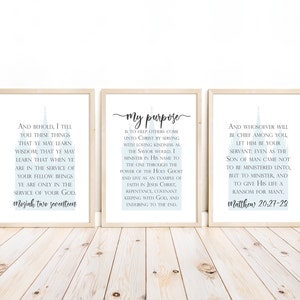 And behold, I tell
you these things
that ye may learn
wisdom; that ye may
learn that when ye
are in the service of
your fellow beings
ye are only in the
service of your God.
Mosiah two seventeen
my purpose
is to help others come
unto Christ by serving
with loving kindness as
the Savior would. I
minister in His name to
the one through the
power of the Holy Ghost
and live as an example of
faith in Jesus Christ,
repentance, covenant
keeping with God, and
enduring to the end.
And whosoever will
be chief among you,
let him be your
servent: even as the
Son of man came not
to be ministered unto,
but to minister, and
to give His life a
ransom for many.
Matthew 20:27-28